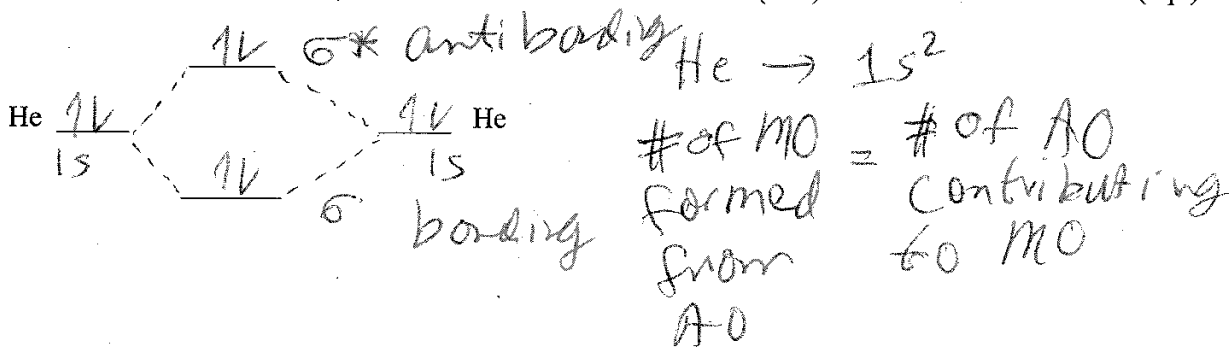 σ* antibonding
He → 1s²
He 1s
1s He
σ bonding
# of MO formed from AO = # of AO contributing to MO